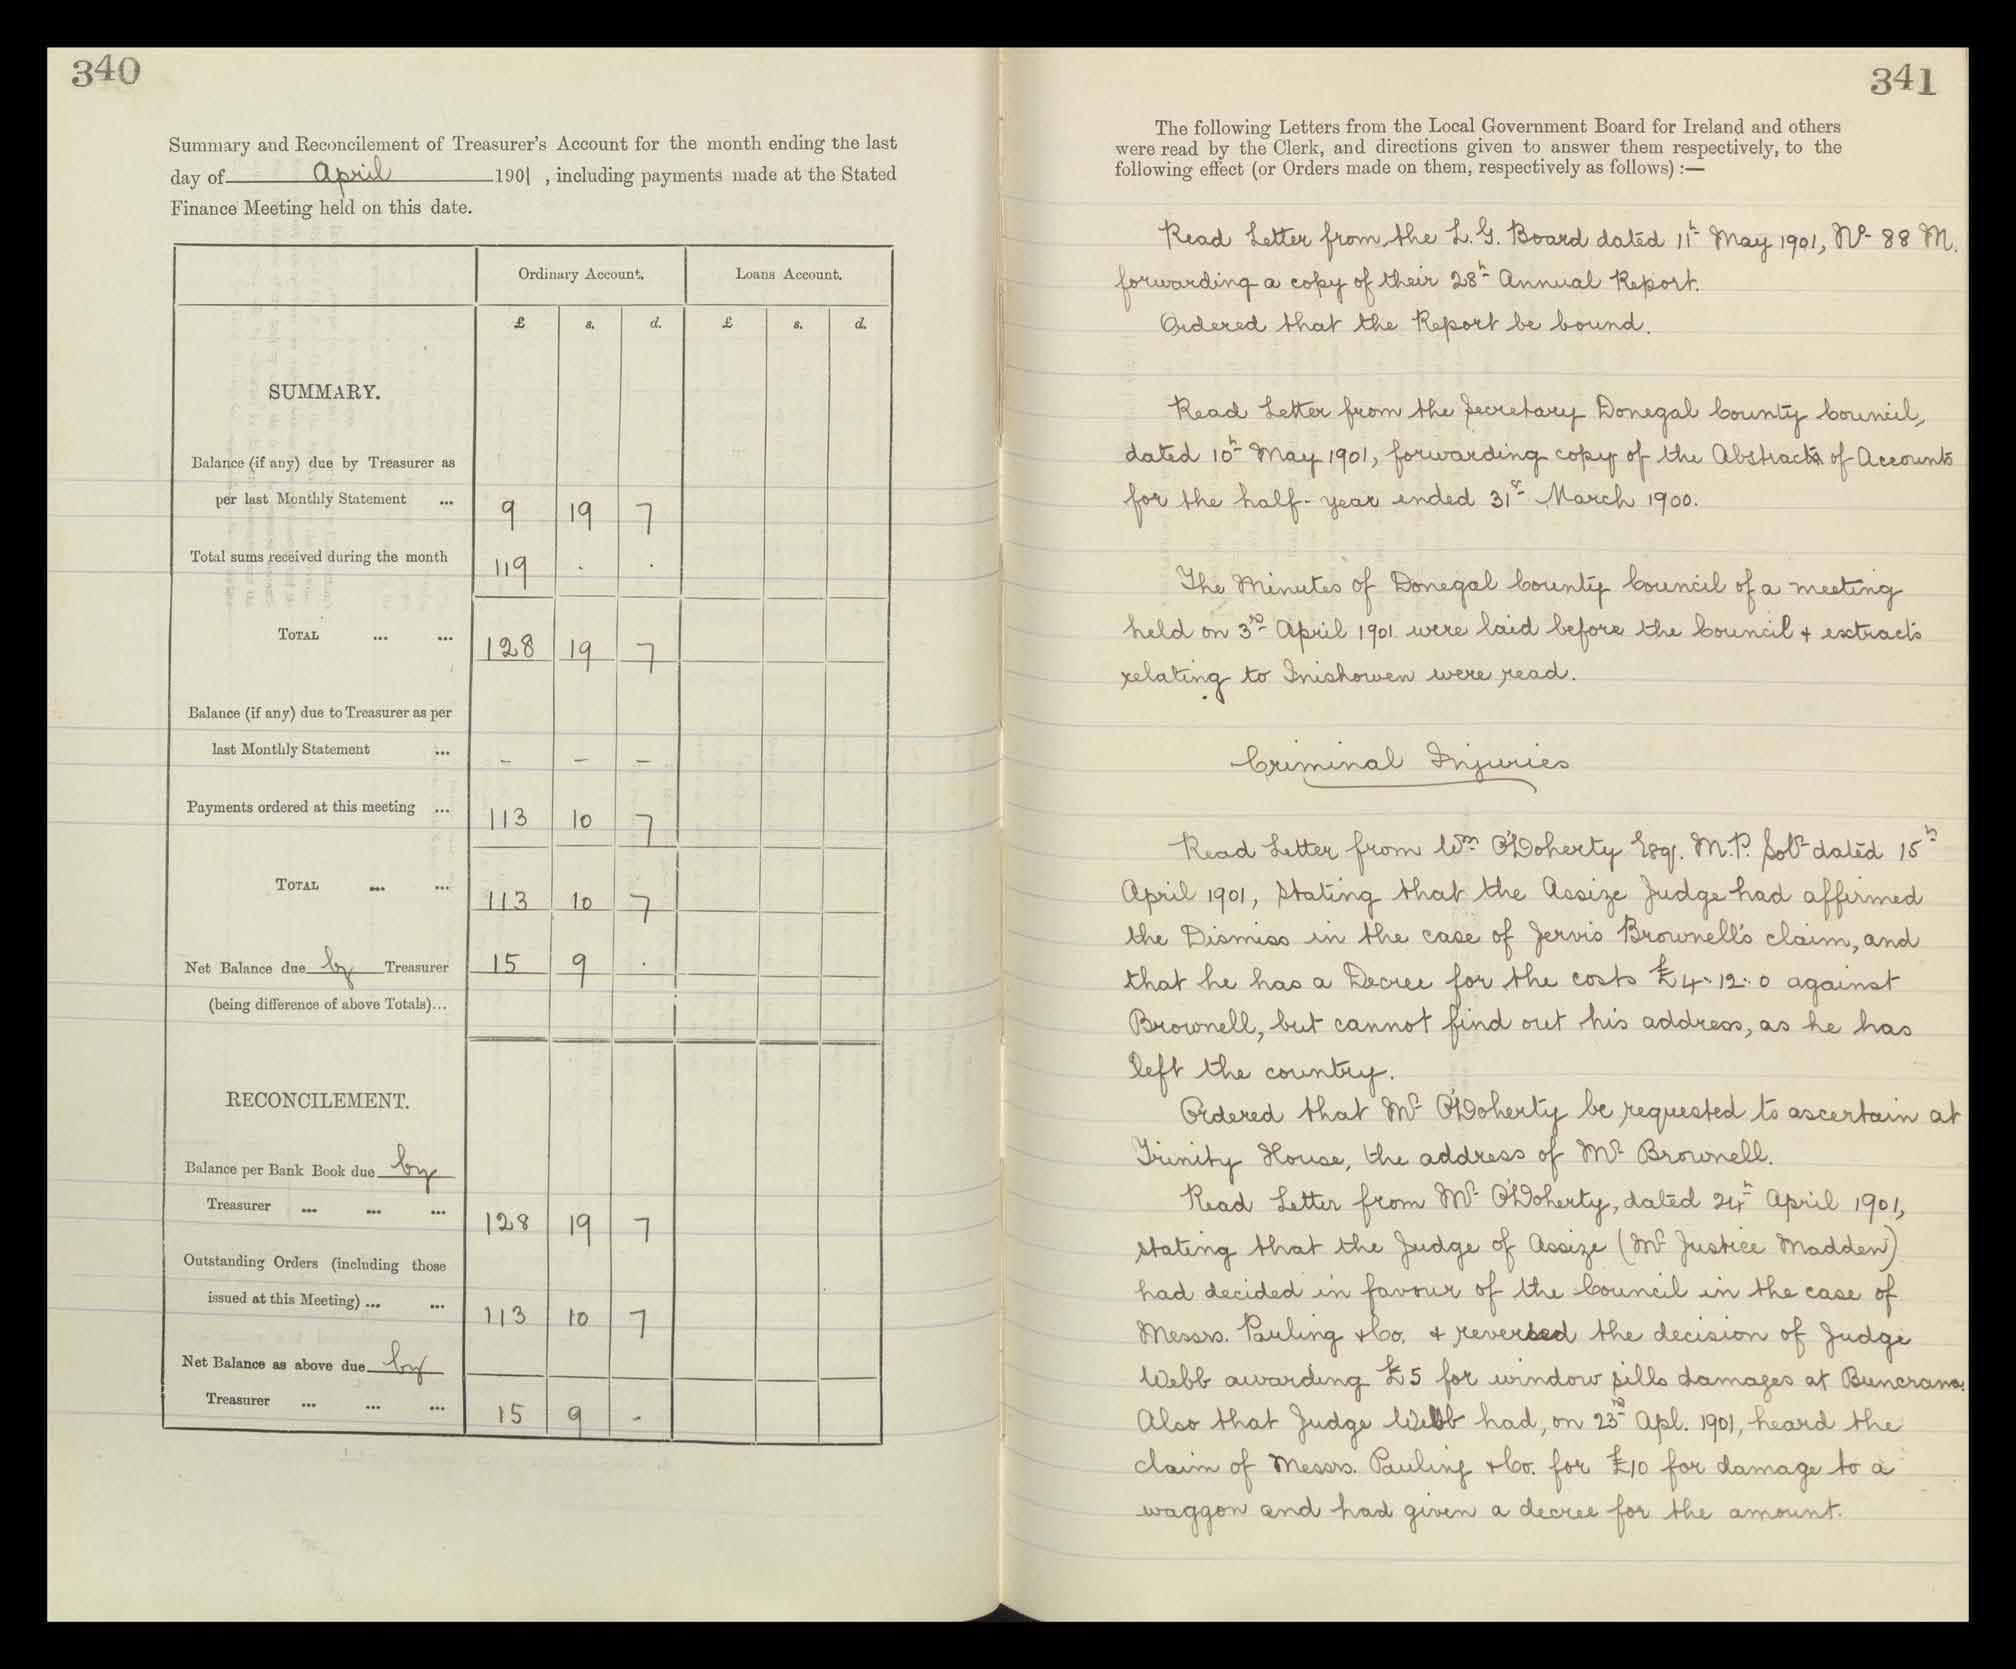 340
Summary and Reconcilement of Treasurer's Account for the month ending the last
day of April 1901, including payments made at the Stated
Finance Meeting held on this date.
Ordinary Account. Loans Account.
£ s. d. £ s. d.
SUMMARY.
Balance (if any) due by Treasurer as
per last Monthly Statement ... 9 19 7
Total sums received during the month 119 . .
TOTAL ... ... 128 19 7
Balance (if any) due to Treasurer as per
last Monthly Statement ... – – –
Payments ordered at this meeting ... 113 10 7
TOTAL ... ... 113 10 7
Net Balance due by Treasurer 15 9 .
(being difference of above Totals)...
RECONCILEMENT.
Balance per Bank Book due by
Treasurer ... ... ... 128 19 7
Outstanding Orders (including those
issued at this Meeting) ... ... 113 10 7
Net Balance as above due by
Treasurer ... ... ... 15 9 -
341
The following Letters from the Local Government Board for Ireland and others
were read by the Clerk, and directions given to answer them respectively, to the
following effect (or Orders made on them, respectively as follows) :—
Read Letter from the L. G. Board dated 11th May 1901, No 88 M.
forwarding a copy of their 28th Annual Report.
Ordered that the Report be bound.
Read Letter from the Secretary Donegal County Council,
dated 10th May 1901, forwarding copy of the Abstracts of Accounts
for the half-year ended 31st March 1900.
The Minutes of Donegal County Council of a meeting
held on 3rd April 1901 were laid before the Council & extracts
relating to Inishowen were read.
Criminal Injuries
Read Letter from Wm O'Doherty Esq. M.P. Solr dated 15th
April 1901, stating that the Assize Judge had affirmed
the Dismiss in the case of Jervis Brownell's claim, and
that he has a Decree for the costs £4.12.0 against
Brownell, but cannot find out his address, as he has
left the country.
Ordered that Mr O'Doherty be requested to ascertain at
Trinity House, the address of Mr Brownell.
Read Letter from Mr O'Doherty, dated 24th April 1901,
stating that the Judge of Assize (Mr Justice Madden)
had decided in favour of the Council in the case of
Messrs. Pauling & Co. & reversed the decision of Judge
Webb awarding £5 for window sills damages at Buncrana.
Also that Judge Webb had, on 23rd Apl. 1901, heard the
claim of Messrs. Pauling & Co. for £10 for damage to a
waggon and had given a decree for the amount.